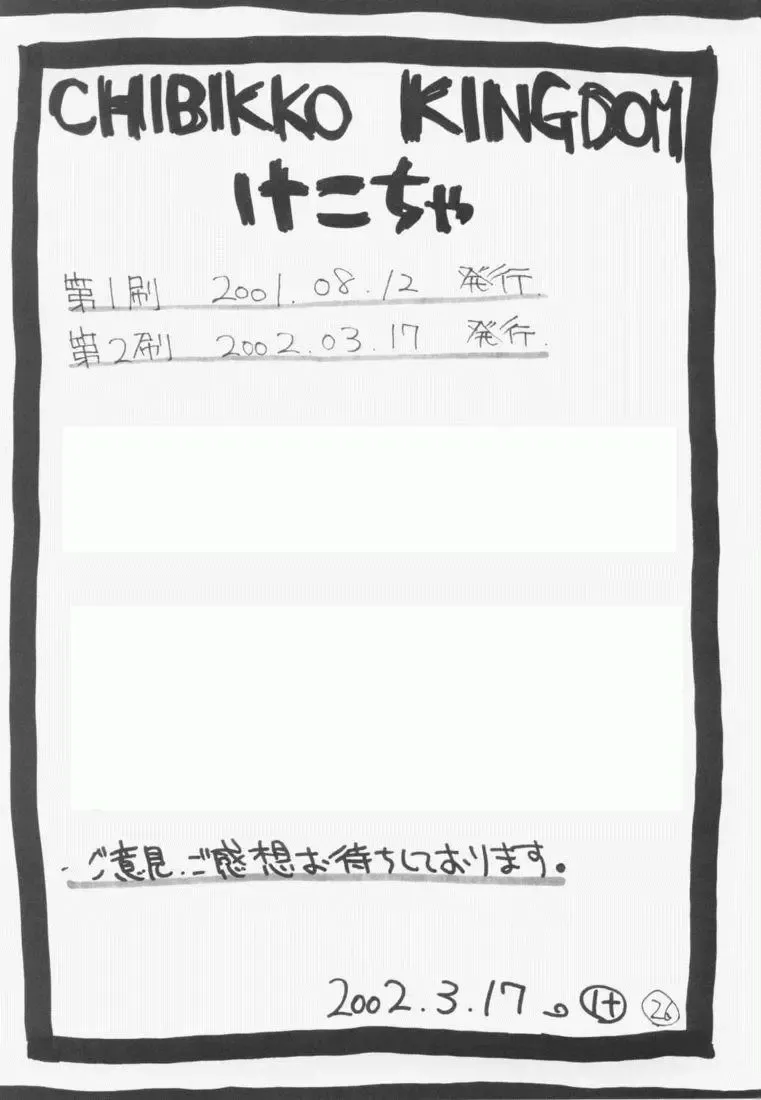 CHIBIKKO KINGDOM
けこちゃ
第1刷 2001.08.12 発行.
第2刷 2002.03.17 発行.
ご意見.ご感想お待ちしております。
2002.3.17 け 26